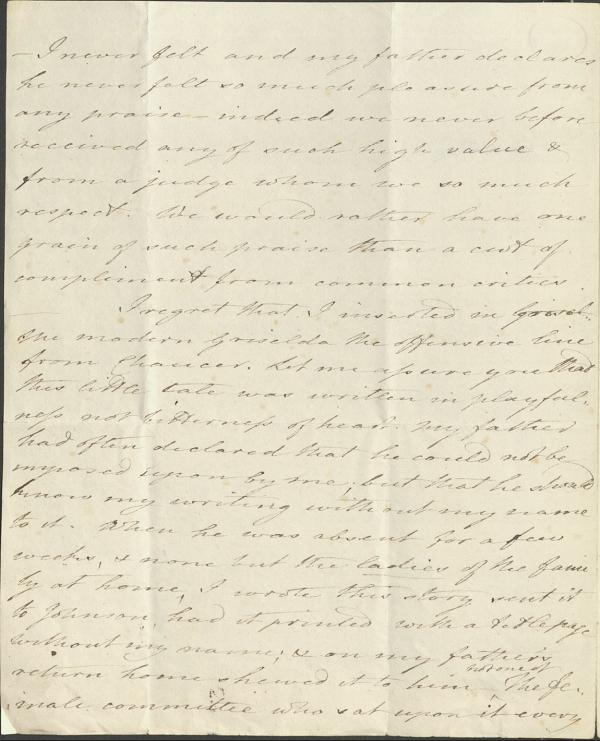 – I never felt and my father declares
he never felt so much pleasure from
any praise – indeed we never before
received any of such high value &
from a judge whom we so much
respect. We would rather have one
grain of such praise than a cwt of
compliment from common critics.
I regret that I inserted in Grisel-
the modern Griselda the offensive line
from Chaucer. Let me assure you that
this little tale was written in playful-
ness not bitterness of heart. My father
had often declared that he could not be
imposed upon by me; but that he should
know my writing without my name
to it. When he was absent for a few
weeks, & none but the ladies of the fami
ly at home, I wrote this story sent it
to Johnson, had it printed with a title page
without my name; & on my father's
return home shewed it to him. not one of The fe-
male committee who sat upon it every